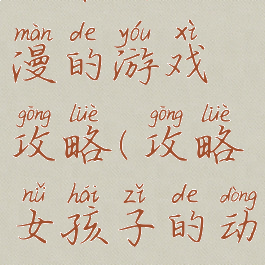 màn de yóu xì
漫的游戏
gōng lüè gōng lüè
攻略(攻略
nǚ hái zǐ de dòng
女孩子的动